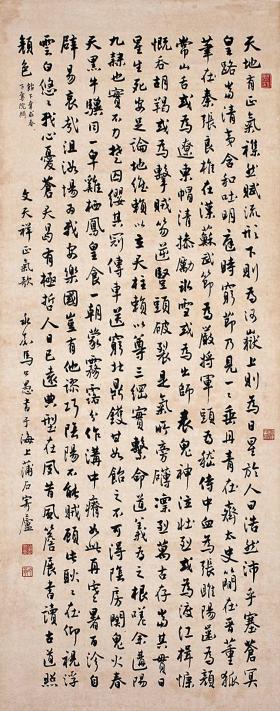 天地有正氣襍然賦流形下則為河嶽上則為日星於人曰浩然沛乎塞蒼冥
皇路當清夷含和吐明庭時窮節乃見一一垂丹青在齊太史簡在晉董狐
筆在秦張良椎在漢蘇武節為嚴將軍頭為嵇侍中血為張睢陽齒為顏
常山舌或為遼東帽清操勵冰雪或為出師表鬼神泣壯烈或為渡江楫慷
慨吞胡羯或為擊賊笏逆豎頭破裂是氣所旁礴凜烈萬古存當其貫日
月生死安足論地維賴以立天柱賴以尊三綱實繫命道義為之根嗟余遘陽
九隸也實不力楚囚纓其冠傳車送窮北鼎鑊甘如飴之不可得陰房闃鬼火春
天黑牛驥同一皁雞棲鳳皇食一朝蒙霧露分作溝中瘠如此再寒暑百沴自
辟易哀哉沮洳場為我安樂國豈有他謬巧陰陽不能賊顧此耿耿在仰視浮
雲白悠悠我心憂蒼天曷有極哲人日已遠典型在夙昔風簷展書讀古道照
顏色
飴下奪求春
下奪院閟
文天祥正氣歌 永嘉馬公愚書于海上蒲石寄廬